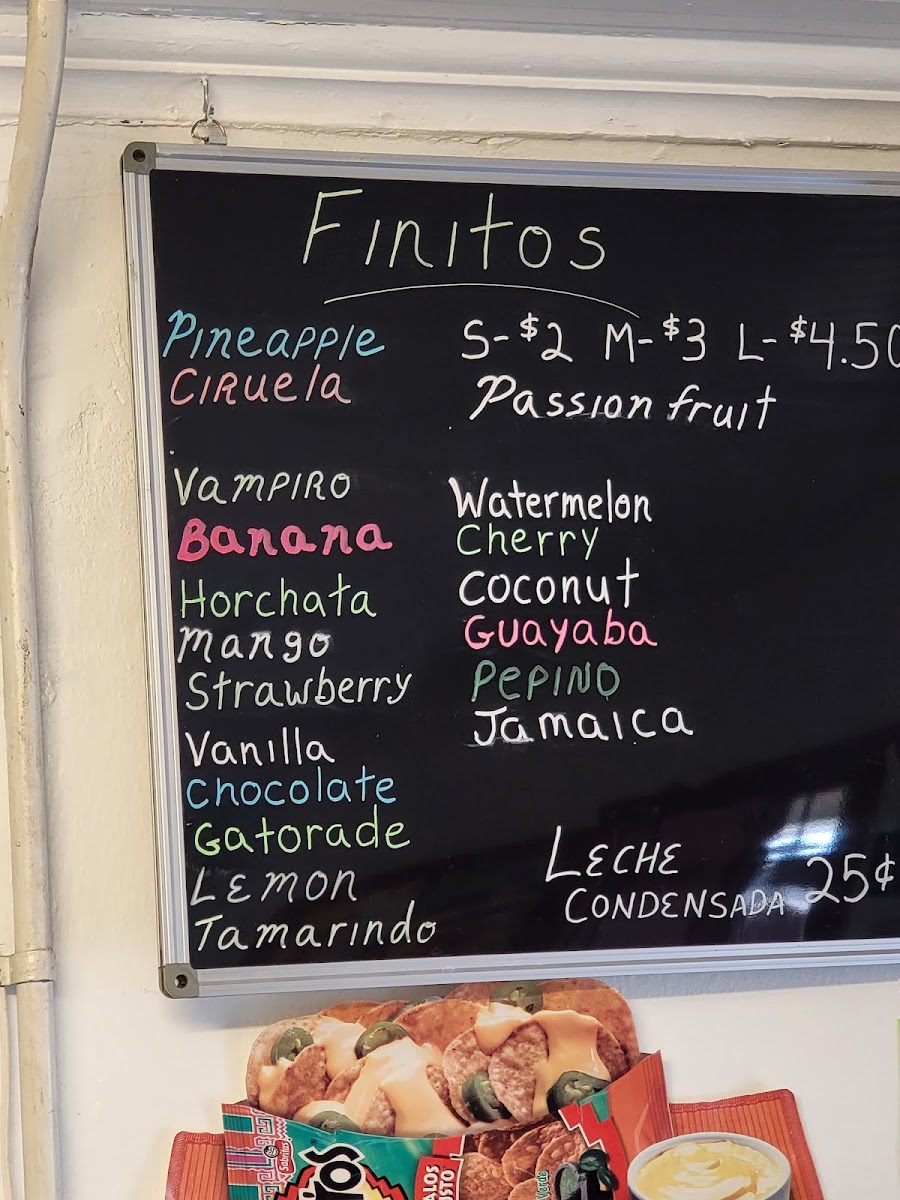 Finitos
Pineapple
Ciruela
S-$2 M-$3 L-$4.50
Passion fruit
Vampiro
Banana
Horchata
Mango
Strawberry
Vanilla
Chocolate
Gatorade
Lemon
Tamarindo
Watermelon
Cherry
Coconut
Guayaba
Pepino
Jamaica
Leche
Condensada 25¢
Sabritas
Verde